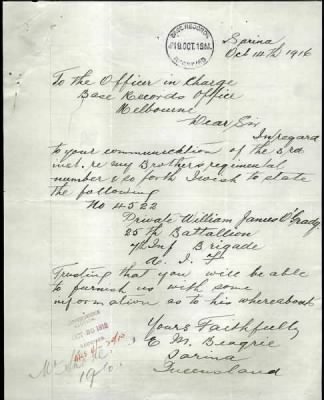 Sarina
Oct 14th 1916
BASE RECORDS
19 OCT. 1916
To the Officer in Charge
Base Records Office
Melbourne
Dear Sir
In regard
to your communication of the 3rd
inst. re my Brothers regimental
number & so forth I wish to state
the following
No 4522
Private William James O'Grady
25th Battalion
7th Inf Brigade
A. I. F.
Trusting that you will be able
to furnish us with some
information as to his whereabouts
Yours Faithfully
E M. Beagrie
Sarina
Queensland
OCT 20 1916